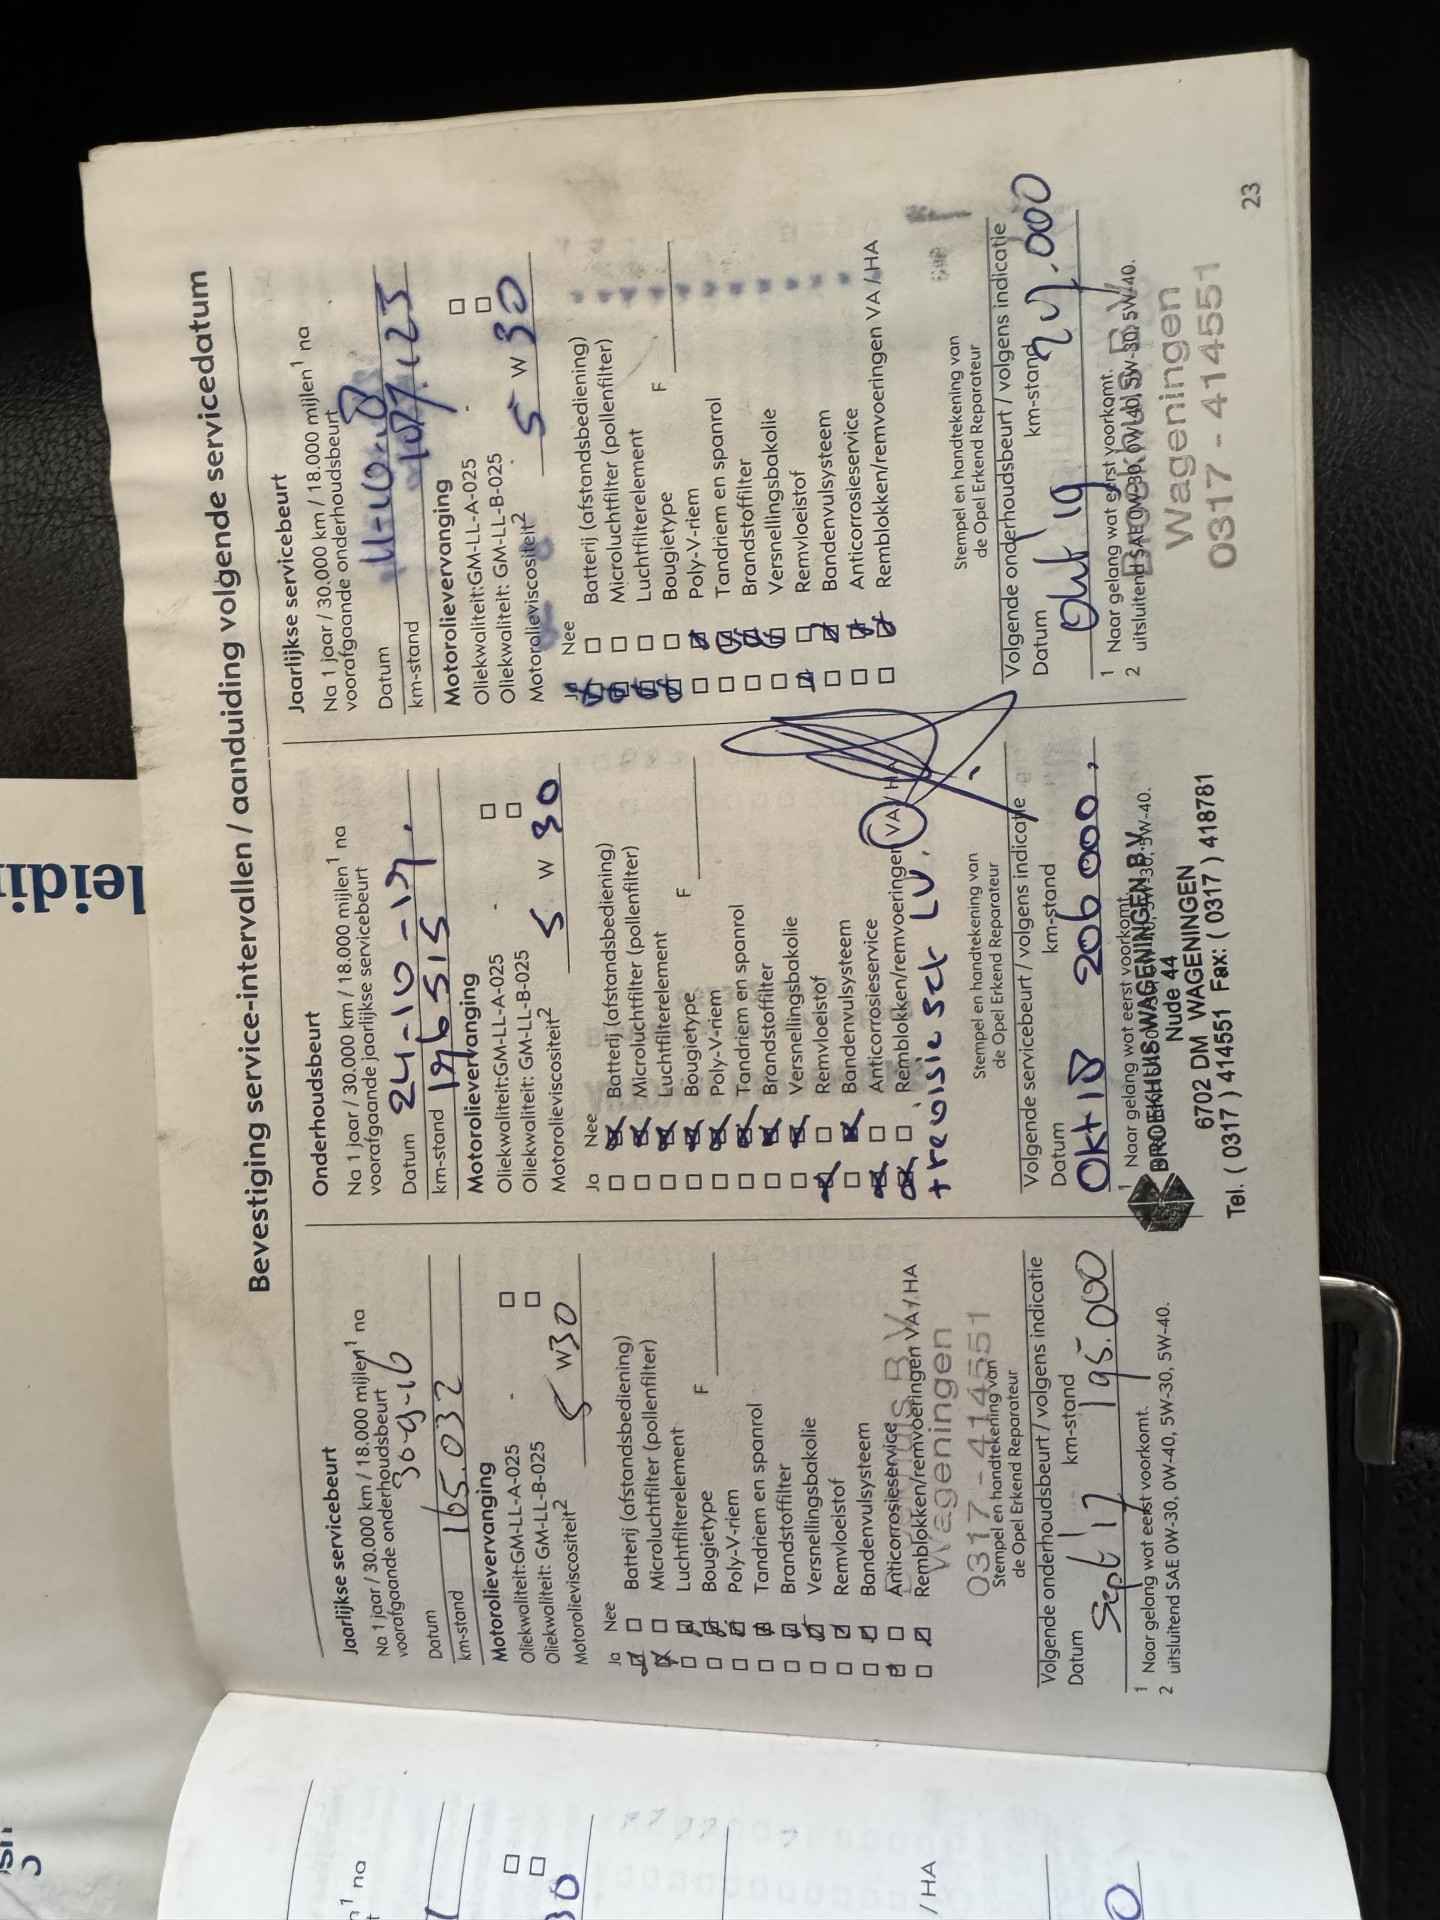 Bevestiging service-intervallen / aanduiding volgende servicedatum
Jaarlijkse servicebeurt
Na 1 jaar / 30.000 km / 18.000 mijlen1 na
voorafgaande onderhoudsbeurt
Datum 30-9-16
km-stand 165.032
Motorolievervanging
Oliekwaliteit:GM-LL-A-025
Oliekwaliteit: GM-LL-B-025
Motorolieviscositeit2 5 W 30
Ja Nee
Batterij (afstandsbediening)
Microluchtfilter (pollenfilter)
Luchtfilterelement
Bougietype F
Poly-V-riem
Tandriem en spanrol
Brandstoffilter
Versnellingsbakolie
Remvloeistof
Bandenvulsysteem
Anticorrosieservice
Remblokken/remvoeringen VA / HA
Wageningen
0317 - 414551
Stempel en handtekening van
de Opel Erkend Reparateur
Volgende onderhoudsbeurt / volgens indicatie
Datum km-stand
Sept '17 195.000
1 Naar gelang wat eerst voorkomt.
2 uitsluitend SAE 0W-30, 0W-40, 5W-30, 5W-40.
Onderhoudsbeurt
Na 1 jaar / 30.000 km / 18.000 mijlen1 na
voorafgaande jaarlijkse servicebeurt
Datum 24-10-17.
km-stand 196515
Motorolievervanging
Oliekwaliteit:GM-LL-A-025
Oliekwaliteit: GM-LL-B-025
Motorolieviscositeit2 5 W 30
Ja Nee
Batterij (afstandsbediening)
Microluchtfilter (pollenfilter)
Luchtfilterelement
Bougietype F
Poly-V-riem
Tandriem en spanrol
Brandstoffilter
Versnellingsbakolie
Remvloeistof
Bandenvulsysteem
Anticorrosieservice
Remblokken/remvoeringen VA / HA
+ revisieset LV.
Stempel en handtekening van
de Opel Erkend Reparateur
Volgende servicebeurt / volgens indicatie
Datum km-stand
Okt 18 206000,
1 Naar gelang wat eerst voorkomt.
BROEKHUIS WAGENINGEN B.V.
Nude 44
6702 DM WAGENINGEN
Tel. ( 0317 ) 414551 Fax: ( 0317 ) 418781
Jaarlijkse servicebeurt
Na 1 jaar / 30.000 km / 18.000 mijlen1 na
voorafgaande onderhoudsbeurt
Datum
km-stand
Motorolievervanging
Oliekwaliteit:GM-LL-A-025
Oliekwaliteit: GM-LL-B-025
Motorolieviscositeit2 5 W 30
Ja Nee
Batterij (afstandsbediening)
Microluchtfilter (pollenfilter)
Luchtfilterelement
Bougietype F
Poly-V-riem
Tandriem en spanrol
Brandstoffilter
Versnellingsbakolie
Remvloeistof
Bandenvulsysteem
Anticorrosieservice
Remblokken/remvoeringen VA / HA
Stempel en handtekening van
de Opel Erkend Reparateur
Volgende onderhoudsbeurt / volgens indicatie
Datum km-stand
Okt '19
1 Naar gelang wat eerst voorkomt.
2 uitsluitend SAE 0W-30, 0W-40, 5W-30, 5W-40.
Broekhuis B.V.
Wageningen
0317 - 414551
23